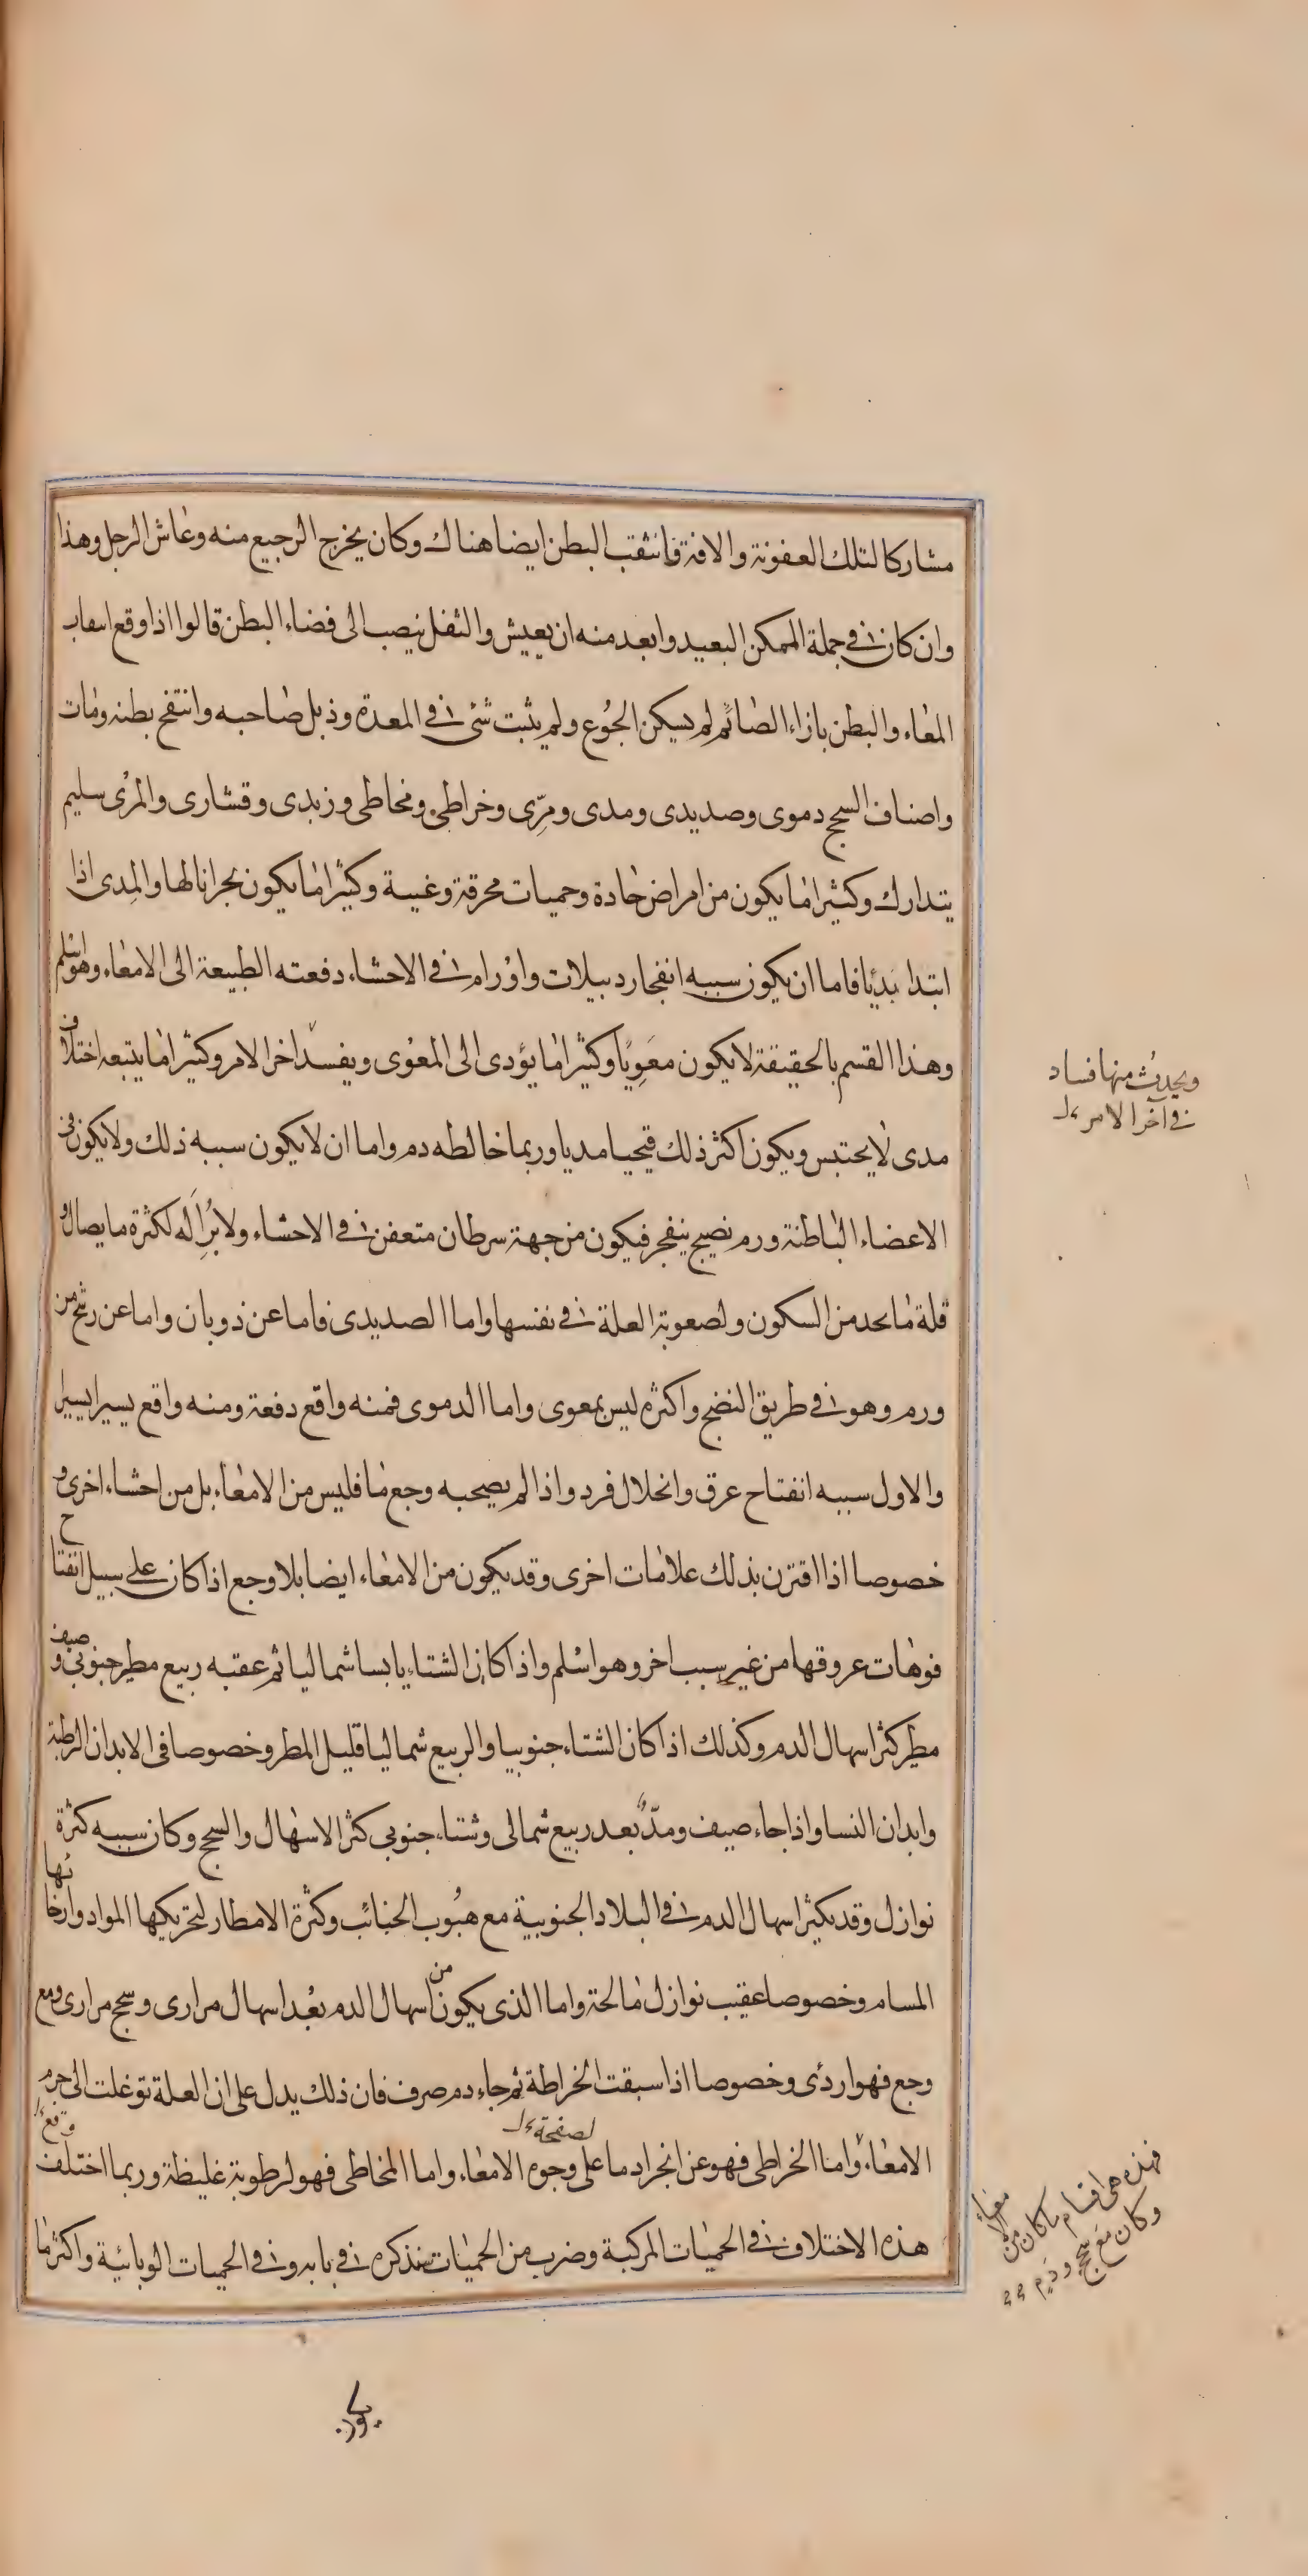 مشاركا لتلك العفونة والافة فانثقب البطن ايضا هناك وكان يخرج الرجيع منه وعاش الرجل وهذا
وان كان في جملة الممكن البعيد وابعد منه ان يعيش والثفل ينصب الى فضاء البطن قالوا اذا وقع انثقاب
المعاء والبطن بازاء الصائم لم يسكن الجوع ولم يثبت شئ في المعدة وذبل صاحبه وانتفخ بطنه ومات
واصناف السحج دموى وصديدى ومدى ومِرّى وخراطى ومخاطى وزبدى وقشارى والمرى سليم
يتدارك وكثيرا ما يكون من امراض حادة وحميات محرقة وغبية وكثيرا ما يكون بحرانا لها والمِدى اذا
ابتدا بديًا فاما ان يكون سببه انفجار دبيلات واورام في الاحشاء دفعته الطبيعة الى الامعاء وهو اسلم
وهذا القسم بالحقيقة لا يكون معَوِيًا وكثيرا ما يؤدى الى المعوى ويفسد اخر الامر وكثيرا ما يتبعه اختلاف
ويحدث منها فساد
في آخر الامر
مدى لا يحتبس ويكون اكثر ذلك قيحيا مديا وربما خالطه دم واما ان لا يكون سببه ذلك ولا يكون في
الاعضاء الباطنة ورم نضيج ينفجر فيكون من جهة سرطان متعفن في الاحشاء ولا بُرأ له لكثرة ما يصال و
قلة ما يحد من السكون ولصعوبة العلة في نفسها واما الصديدى فاما عن ذوبان واما عن رشح من
ورم وهو في طريق النضج واكثره ليس بمعوى واما الدموى فمنه واقع دفعة ومنه واقع يسيرا يسيرا
والاول سببه انفتاح عرق وانحلال فرد واذا لم يصحبه وجع ما فليس من الامعاء بل من احشاء اخرى و
خصوصا اذا اقترن بذلك علامات اخرى وقد يكون من الامعاء ايضا بلا وجع اذا كان على سبيل انفتاح
فوهات عروقها من غير سبب اخر وهو اسلم واذا كان الشتاء يابسا شماليا ثم عقبه ربيع مطير جنوبى وصيف
مطير كثر اسهال الدم وكذلك اذا كان الشتاء جنوبيا والربيع شماليا قليل المطر وخصوصا فى الابدان الرطبة
وابدان النسا واذا جاء صيف ومدٌّ بعد ربيع شمالى وشتاء جنوبى كثر الاسهال والسحج وكان سببه كثرة
نوازل وقد يكثر اسهال الدم في البلاد الجنوبية مع هبوب الجنائب وكثرة الامطار لتحريكها المواد وارخائها
المسام وخصوصا عقيب نوازل مالحة واما الذى يكون من اسهال الدم بعد اسهال مرارى وسحج مرارى ومع
وجع فهو اردئ وخصوصا اذا سبقت الخراطة ثم جاء دم صرف فان ذلك يدل على ان العلة توغلت الى جرم
لصفحة
الامعاء واما الخراطى فهو عن انجراد ما على وجوه الامعاء واما المخاطى فهو لرطوبة غليظة وربما اختلف
هذه الاختلاف في الحميات المركبة وضرب من الحميات نذكره في بابه وفي الحميات الوبائية واكثر ما
فهذه هى اقسام ما كان من الامعاء
وكان مع سحج ودم